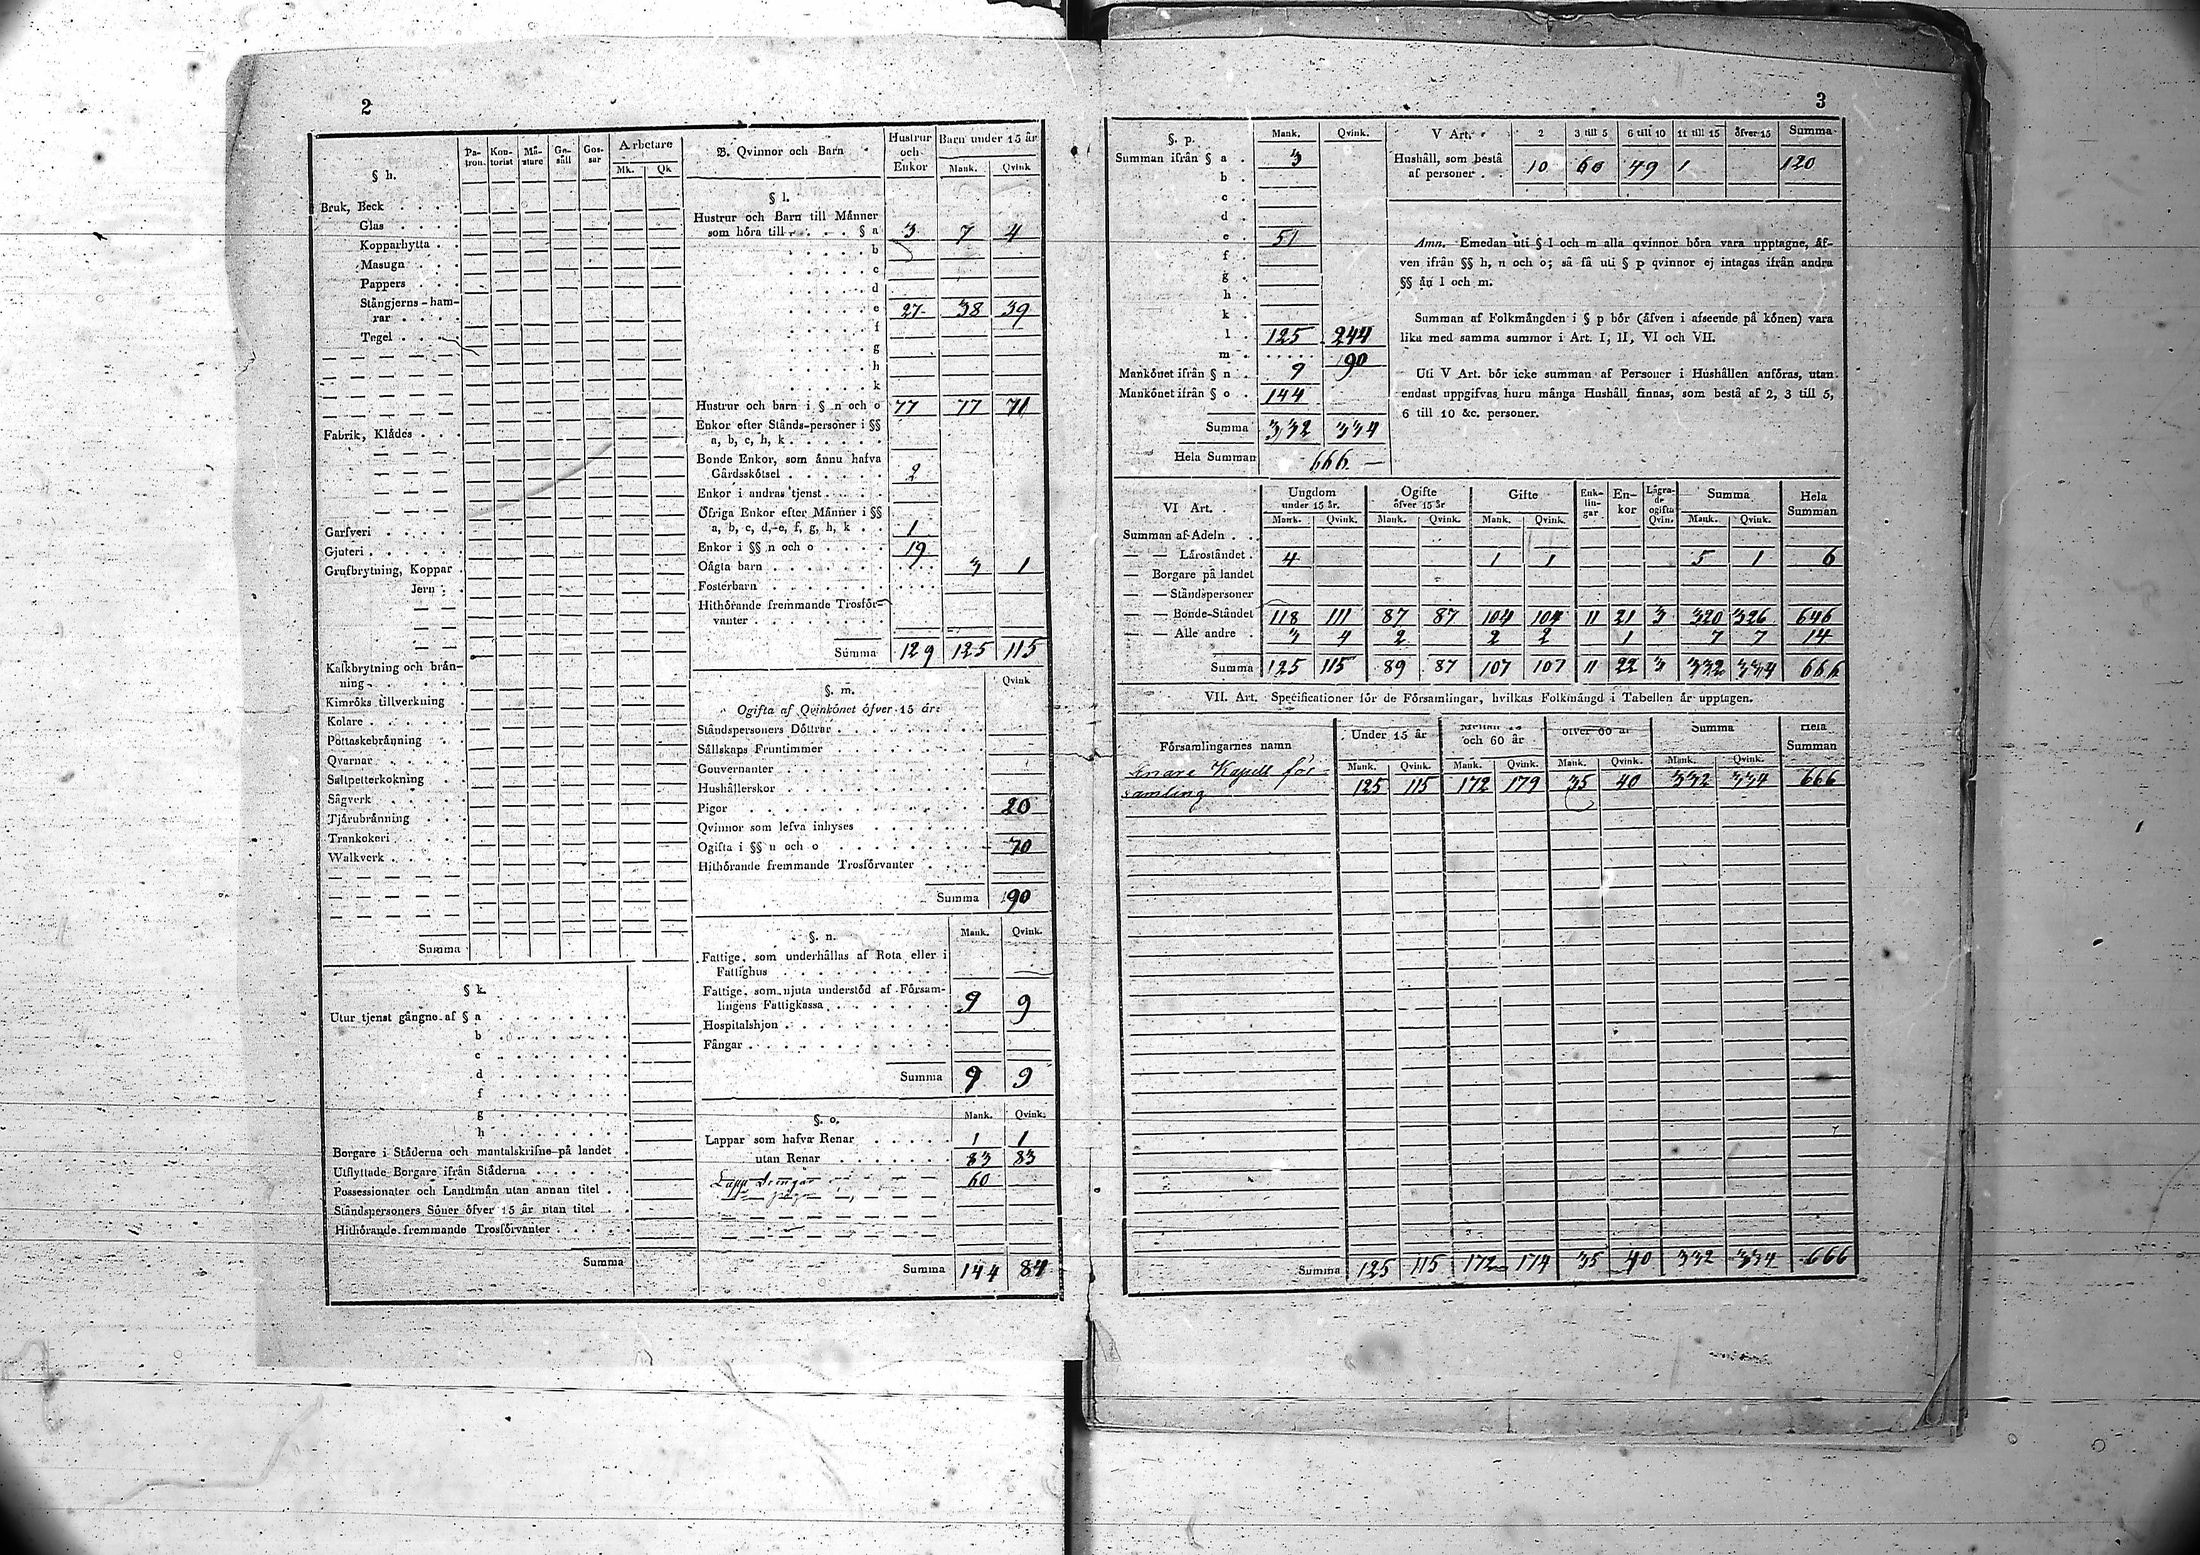 2
§ h.
Pa-tron. Kon-torist Mä-stare Ge-säll Gos-sar Arbetare
Mk. Qk
Bruk, Beck
Glas
Kopparhytta
Masugn
Pappers
Stångjerns-ham-
rar
Tegel
Fabrik, Klådes
Garfveri
Gjuteri
Grufbrytning, Koppar
Jern
Kalkbrytning och brån-
ning
Kimröks tillverkning
Kolare
Pottaskebrånning
Qvarnar
Saltpetterkokning
Sågverk
Tjårubrånning
Trankokeri
Walkverk
Summa
§ k.
Utur tjenst gångne af § a
b
c
d
f
g
h
Borgare i Ståderna och mantalskrifne på landet
Utflyttade Borgare ifrån Ståderna
Possessionater och Landtmån utan annan titel
Ståndspersoners Sôner ôfver 15 år utan titel
Hithôrande fremmande Trosfôrvanter
Summa
B. Qvinnor och Barn Hustrur och Enkor Barn under 15 år
Mank. Qvink
§ l.
Hustrur och Barn till Månner
som hôra till § a 3 7 4
b
c
d
e 27 38 39
f
g
h
k
Hustrur och barn i § n och o 77 77 71
Enkor efter Stånds-personer i §§
a, b, c, h, k
Bonde Enkor, som ånnu hafva
Gårdsskôtsel 2
Enkor i andras tjenst
Ôfriga Enkor efter Månner i §§
a, b, c, d, e, f, g, h, k 1
Enkor i §§ n och o 19
Oågta barn 3 1
Fosterbarn
Hithôrande fremmande Trosfôr-
vanter
Summa 129 125 115
§. m. Qvink
Ogifta af Qvinkônet ôfver 15 år:
Ståndspersoners Dôttrar
Sållskaps Fruntimmer
Gouvernanter
Hushållerskor
Pigor 20
Qvinnor som lefva inhyses
Ogifta i §§ n och o 70
Hithôrande fremmande Trosfôrvanter
Summa 90
§. n. Mank. Qvink.
Fattige, som underhållas af Rota eller i
Fattighus
Fattige, som njuta understôd af Fôrsam-
lingens Fattigkassa 9 9
Hospitalshjon
Fångar
Summa 9 9
§. o. Mank. Qvink.
Lappar som hafva Renar 1 1
utan Renar 83 83
Lapp Drengar 60
Summa 144 84
3
§. p. Mank. Qvink.
Summan ifrån § a 3
b
c
d
e 51
f
g
h
k
l 125 244
m 90
Mankônet ifrån § n 9
Mankônet ifrån § o 144
Summa 332 334
Hela Summan 666
V Art. 2 3 till 5 6 till 10 11 till 15 ôfver 15 Summa
Hushåll, som bestå
af personer 10 60 49 1 120
Anm. Emedan uti § l och m alla qvinnor bôra vara upptagne, åf-
ven ifrån §§ h, n och o; så få uti § p qvinnor ej intagas ifrån andra
§§ ån l och m.
Summan af Folkmångden i § p bôr (åfven i afseende på kônen) vara
lika med samma summor i Art. I, II, VI och VII.
Uti V Art. bôr icke summan af Personer i Hushållen anfôras, utan
endast uppgifvas huru många Hushåll finnas, som bestå af 2, 3 till 5,
6 till 10 &c. personer.
VI Art. Ungdom under 15 år. Ogifte ôfver 15 år Gifte Enk-lin-gar En-kor Lågra-de ogifta Qvin. Summa Hela Summan
Mank. Qvink. Mank. Qvink. Mank. Qvink. Mank. Qvink.
Summan af Adeln
— — Låroståndet 4 1 1 5 1 6
— Borgare på landet
— — Ståndspersoner
— — Bonde-Ståndet 118 111 87 87 104 104 11 21 3 320 326 646
— — Alle andre 3 4 2 2 2 1 7 7 14
Summa 125 115 89 87 107 107 11 22 3 332 334 666
VII. Art. Specificationer fôr de Fôrsamlingar, hvilkas Folkmångd i Tabellen år upptagen.
Fôrsamlingarnes namn Under 15 år och 60 år ôfver 60 år Summa Hela Summan
Mank. Qvink. Mank. Qvink. Mank. Qvink. Mank. Qvink.
Enare Kapells för-
samling 125 115 172 179 35 40 332 334 666
Summa 125 115 172 174 35 40 332 334 666